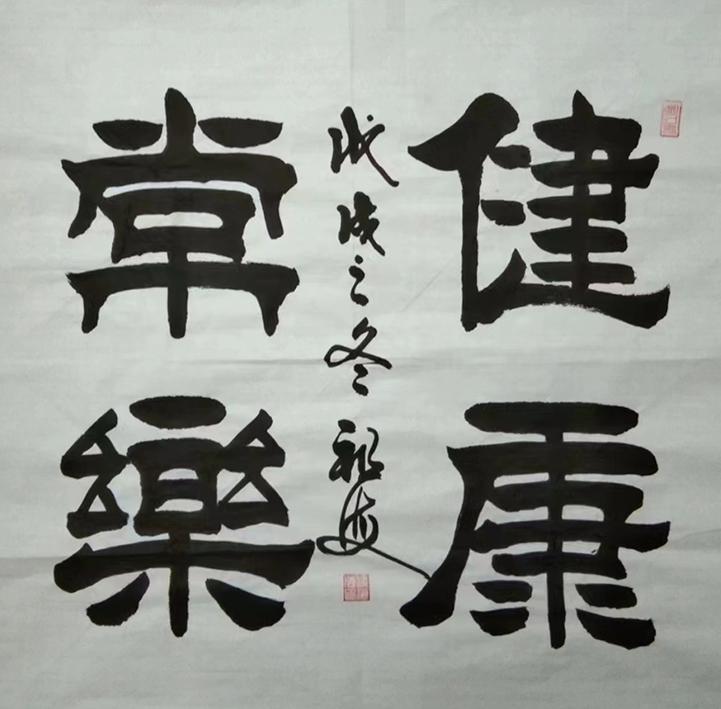 健康
常樂
戊戌之冬 祖海